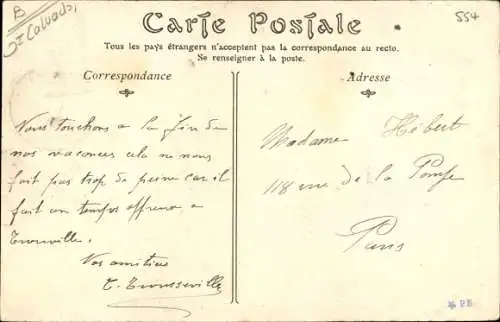 B
Calvados
554
Carte Postale
Tous les pays étrangers n'acceptent pas la correspondance au recto.
Se renseigner à la poste.
Correspondance
Nous touchons a la fin de
nos vacances cela ne nous
fait pas trop de peine car il
fait un temps affreux a
Trouville.
Nos amitiés
Adresse
Madame Hébert
118 rue de la Pompe
Paris